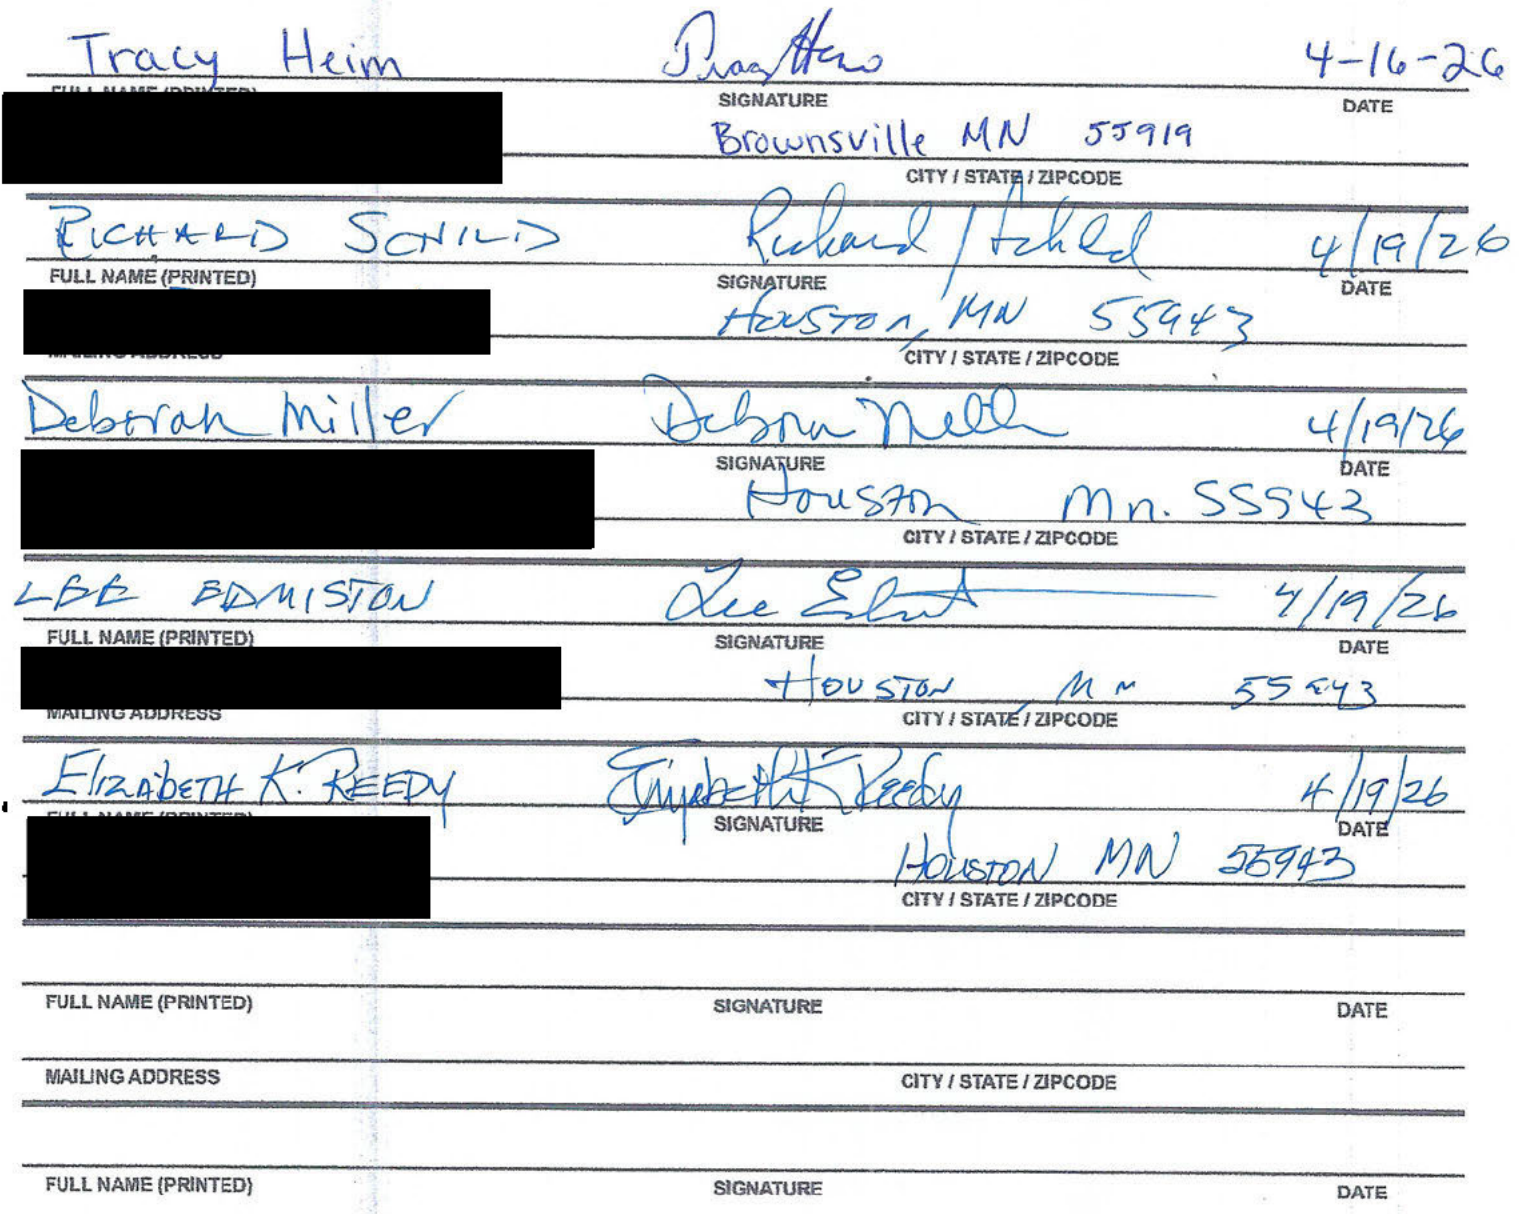 Tracy Heim Tracy Heim 4-16-26
FULL NAME (PRINTED) SIGNATURE DATE
Brownsville MN 55919
CITY / STATE / ZIPCODE
RICHARD SCHILD Richard Schild 4/19/26
FULL NAME (PRINTED) SIGNATURE DATE
HOUSTON, MN 55943
MAILING ADDRESS CITY / STATE / ZIPCODE
Deborah Miller 4/19/26
SIGNATURE DATE
Houston Mn. 55943
CITY / STATE / ZIPCODE
LEE EDMISTON Lee 4/19/26
FULL NAME (PRINTED) SIGNATURE DATE
HOUSTON, MN 55943
MAILING ADDRESS CITY / STATE / ZIPCODE
ELIZABETH K. REEDY Elizabeth K Reedy 4/19/26
FULL NAME (PRINTED) SIGNATURE DATE
HOUSTON MN 55943
CITY / STATE / ZIPCODE
FULL NAME (PRINTED) SIGNATURE DATE
MAILING ADDRESS CITY / STATE / ZIPCODE
FULL NAME (PRINTED) SIGNATURE DATE